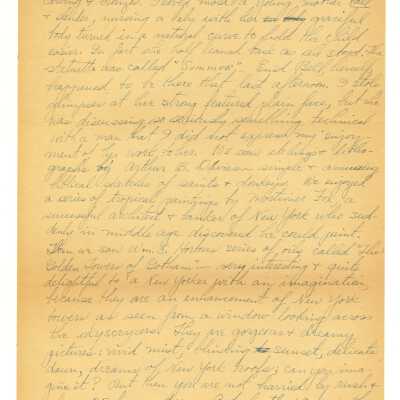 loving & things. I loved most a young mother tall
& slender, nursing a baby with her graceful
body turned in a natural curve to hold the child
easier. In fact she half leaned back as she stood. The
statuette was called "Summer". Enid Bell, herself,
happened to be there that last afternoon. I stole
glimpses at her strong featured plain face, but she
was discussing so seriously something technical
with a man that I did not express my enjoy-
ment of her work to her. We saw etchings & litho-
graphs by Arthur B. Davies simple & amusing
biblical sketches of saints & donkeys. We enjoyed
a series of tropical paintings by Mortimer Fox, a
successful architect & banker of New York who sud-
denly in middle age discovered he could paint.
Then we saw Wm. S. Horton series of oils called "The
Golden Towers of Gotham" - very interesting & quite
delightful to a New Yorker with an imagination,
because they are an enhancement of New York
towers as seen from a window looking across
the skyscrapers. They are gorgeous & dreamy
pictures; vivid mist, blinding sunset, delicate
dawn, dreamy of New York roofs; can you ima-
gine it? But then you are not harried by rush &